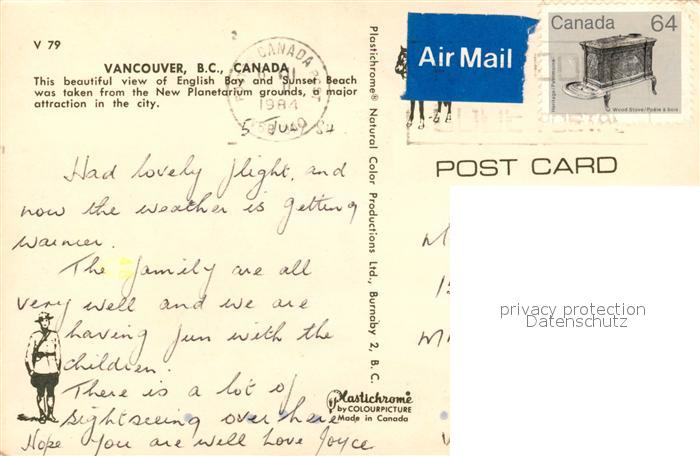 V 79
VANCOUVER, B.C., CANADA
This beautiful view of English Bay and Sunset Beach
was taken from the New Planetarium grounds, a major
attraction in the city.
CANADA POST
1984
5 July 84
Had lovely flight, and
now the weather is getting
warmer.
The family are all
very well and we are
having fun with the
children.
There is a lot of
sightseeing over here
Hope you are well Love Joyce
Plastichrome® Natural Color Productions Ltd., Burnaby 2, B. C.
Plastichrome
by COLOURPICTURE
Made in Canada
Air Mail
Canada 64
Heritage/Patrimoine
Wood Stove/Poêle à bois
POST CARD
privacy protection
Datenschutz